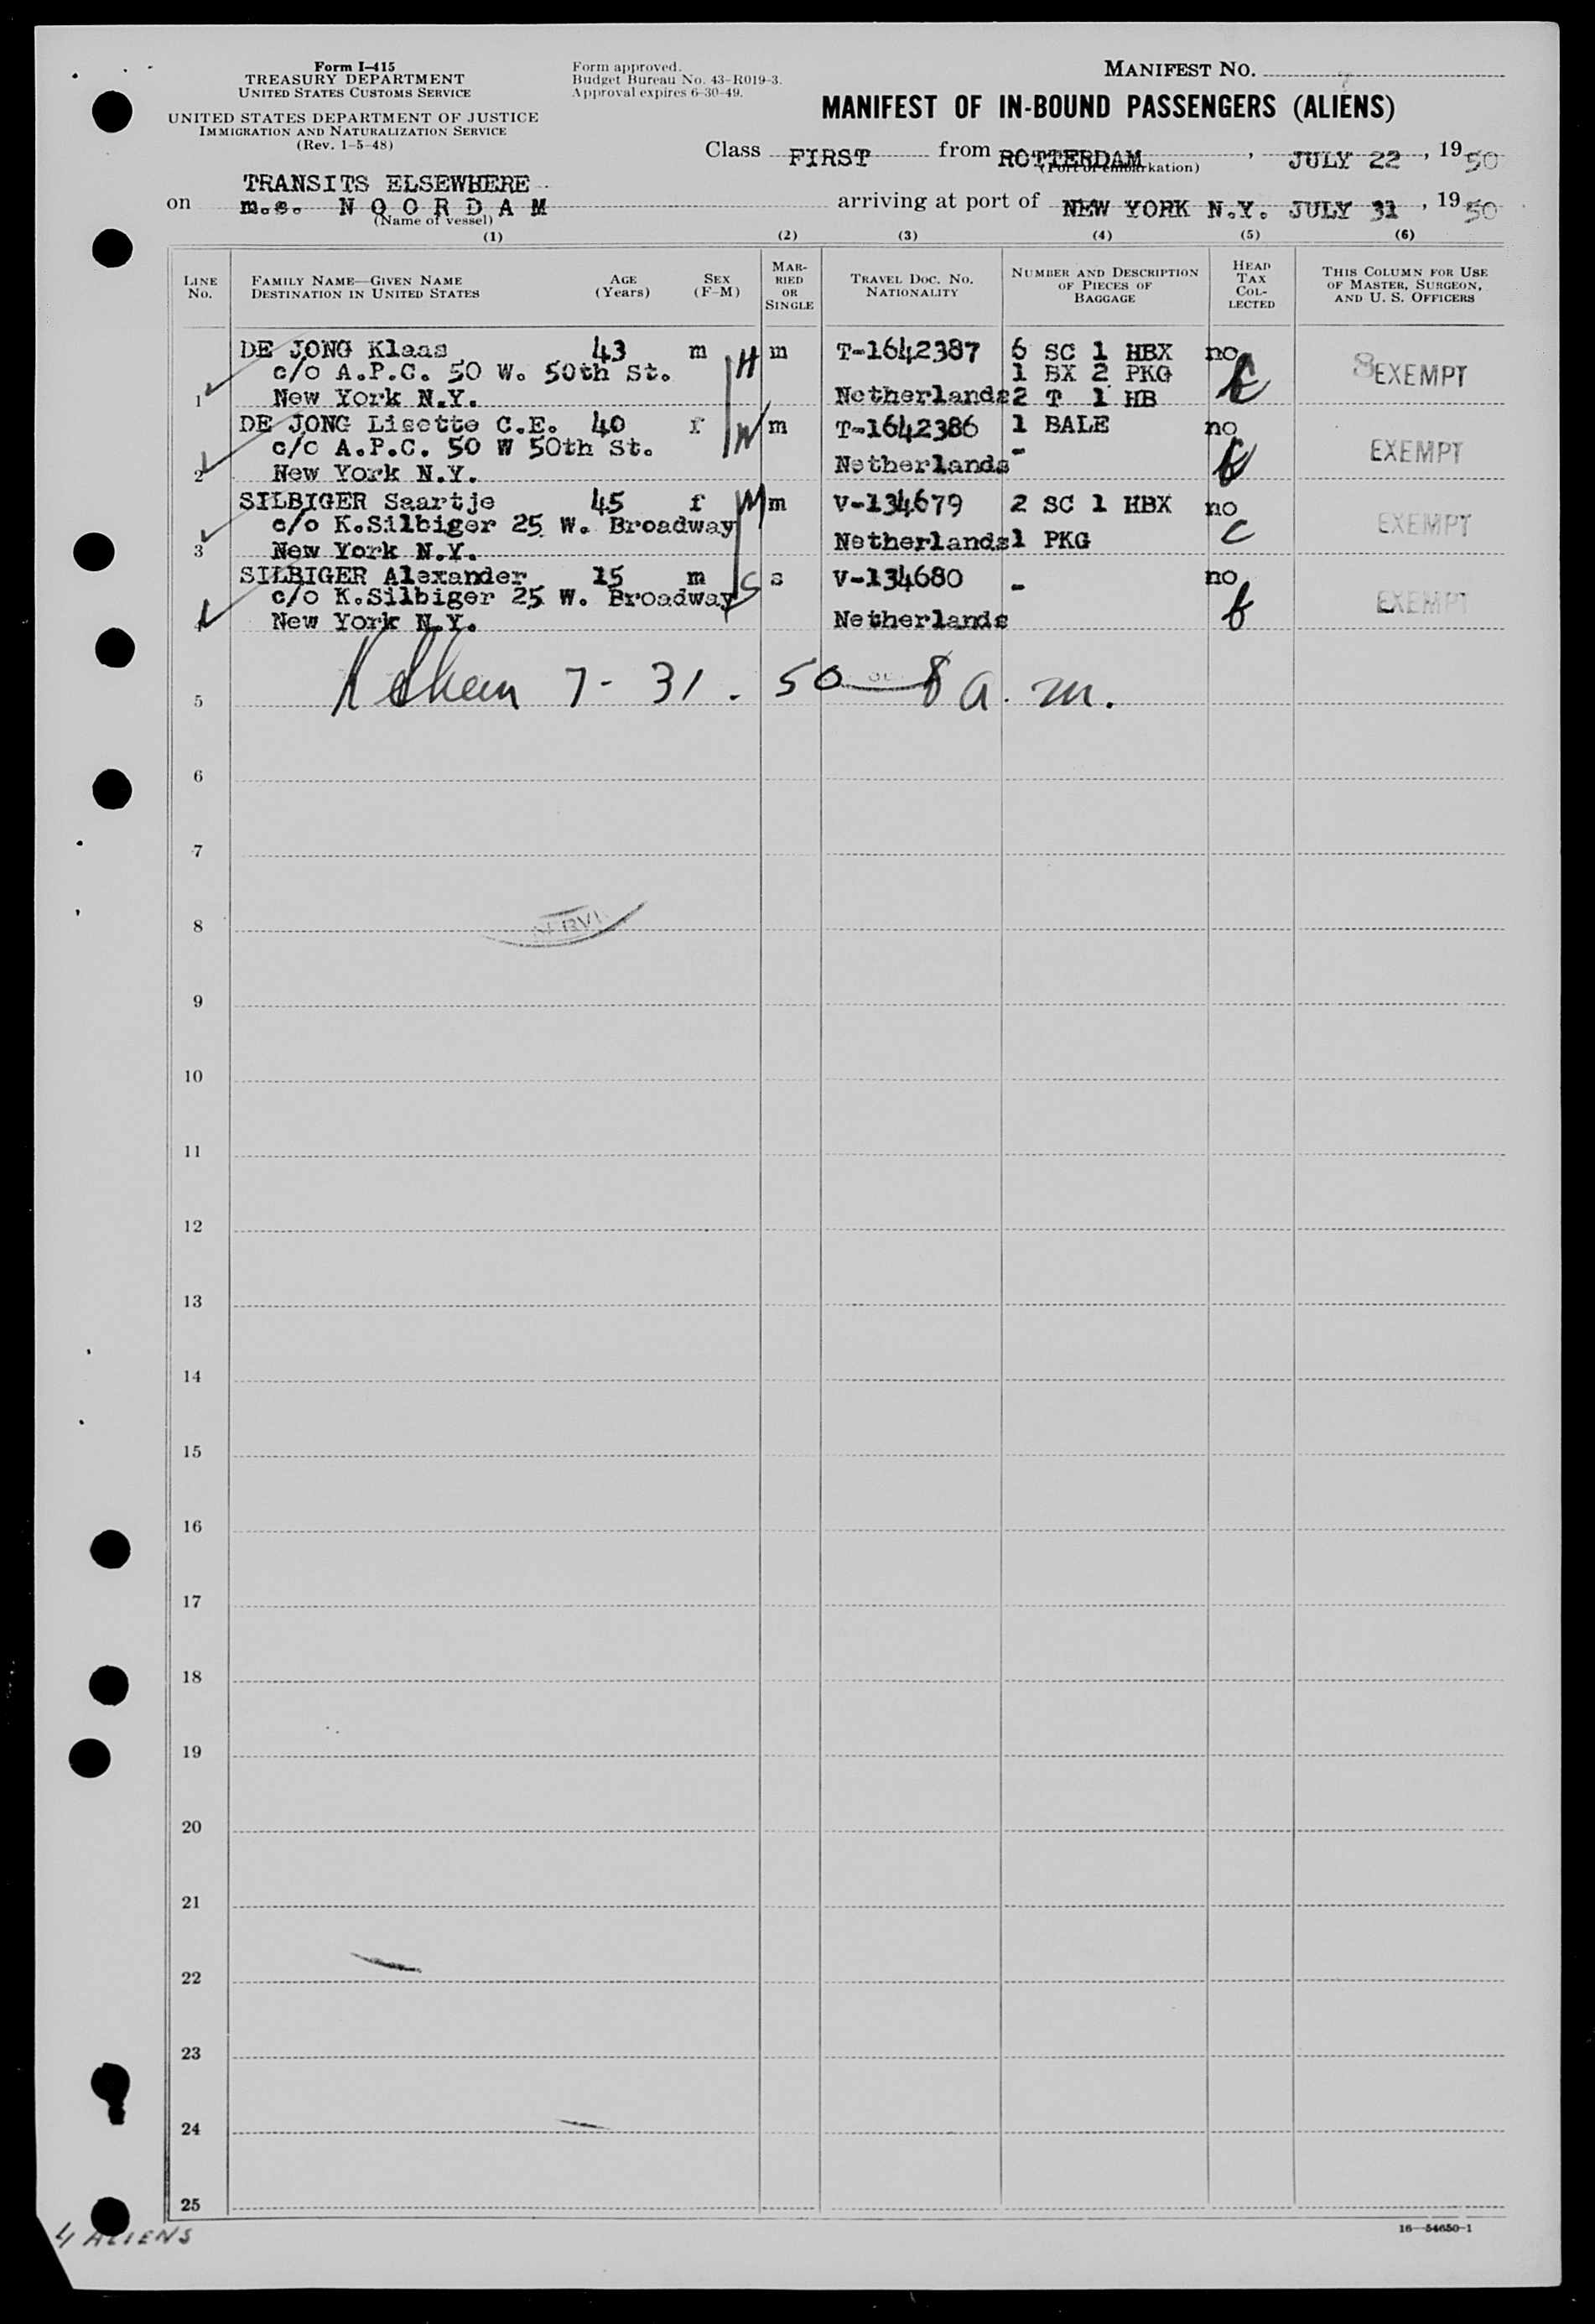 Form I-415
TREASURY DEPARTMENT
UNITED STATES CUSTOMS SERVICE
UNITED STATES DEPARTMENT OF JUSTICE
IMMIGRATION AND NATURALIZATION SERVICE
(Rev. 1-5-48)
Form approved.
Budget Bureau No. 43-R019-3.
Approval expires 6-30-49.
MANIFEST NO.
MANIFEST OF IN-BOUND PASSENGERS (ALIENS)
Class FIRST from ROTTERDAM, JULY 22, 1950
(Port of embarkation)
TRANSITS ELSEWHERE
on m.s. N O O R D A M arriving at port of NEW YORK N.Y. JULY 31, 1950
(Name of vessel)
(1) (2) (3) (4) (5) (6)
LINE NO. FAMILY NAME—GIVEN NAME DESTINATION IN UNITED STATES AGE (Years) SEX (F-M) MARRIED OR SINGLE TRAVEL DOC. NO. NATIONALITY NUMBER AND DESCRIPTION OF PIECES OF BAGGAGE HEAD TAX COLLECTED THIS COLUMN FOR USE OF MASTER, SURGEON, AND U. S. OFFICERS
DE JONG Klaas 43 m H m T-1642387 6 SC 1 HBX no
c/o A.P.C. 50 W. 50th St. 1 BX 2 PKG 8 EXEMPT
1 New York N.Y. Netherlands 2 T 1 HB
DE JONG Lisette C.E. 40 f W m T-1642386 1 BALE no
c/o A.P.C. 50 W 50th St. - EXEMPT
2 New York N.Y. Netherlands
SILBIGER Saartje 45 f M m V-134679 2 SC 1 HBX no
c/o K.Silbiger 25 W. Broadway EXEMPT
3 New York N.Y. Netherlands 1 PKG C
SILBIGER Alexander 15 m S s V-134680 - no
c/o K.Silbiger 25 W. Broadway EXEMPT
4 New York N.Y. Netherlands
5 7-31.50 8 a.m.
6
7
8
9
10
11
12
13
14
15
16
17
18
19
20
21
22
23
24
25
4 ALIENS
16—54650-1